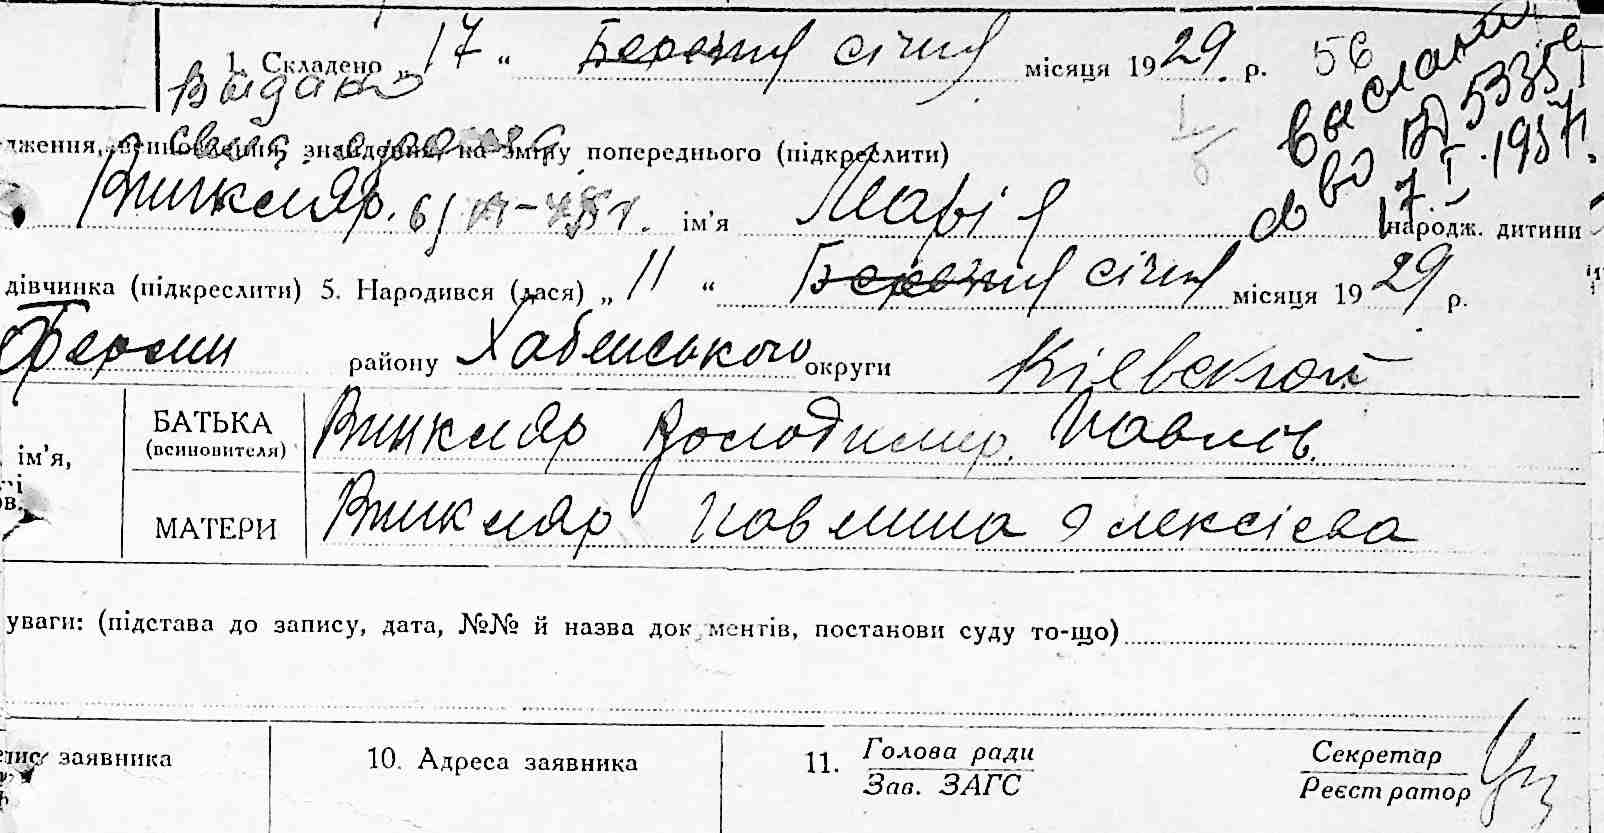 1. Складено „ 17 “ Березня січня місяця 1929 р. 56
Видано
выслана
дження, всиновлення, знайдення, на зміну попереднього (підкреслити)
5335
17. I. 1957
Винкляр. ім’я Марія народж. дитини
дівчинка (підкреслити) 5. Народився (лася) „ 11 “ Березня січня місяця 1929 р.
району Хабенського округи Кіевской
БАТЬКА Винкляр Володимир. Павлов.
(всиновителя)
ім’я,
МАТЕРИ Винкляр Павлина Олексієва
уваги: (підстава до запису, дата, №№ й назва док ментів, постанови суду то-що)
заявника 10. Адреса заявника 11. Голова ради Секретар
Зав. ЗАГС Реєстратор